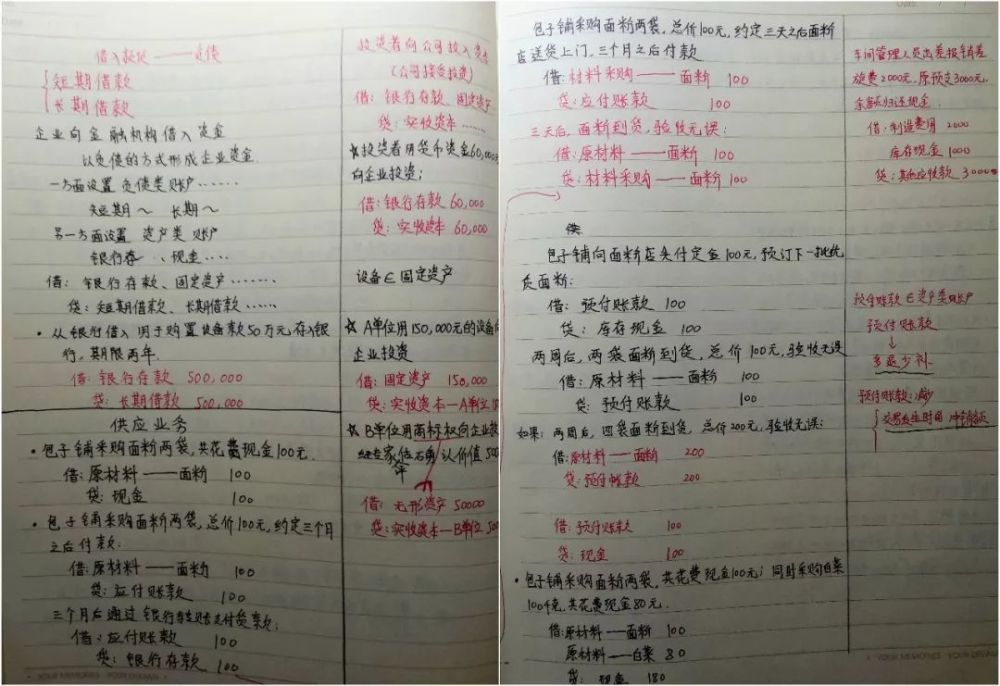 借入款项——负债
短期借款
长期借款
企业向金融机构借入资金
以负债的方式形成企业资金
一方面设置负债类账户……
短期~ 长期~
另一方面设置 资产类 账户
银行存 、现金……
借：银行存款、固定资产……
贷：短期借款、长期借款……
• 从银行借入用于购置设备款50万元,存入银
行，期限两年.
借：银行存款 500,000
贷：长期借款 500,000
供应业务
• 包子铺采购面粉两袋,共花费现金100元.
借：原材料——面粉 100
贷：现金 100
• 包子铺采购面粉两袋,总价100元,约定三个月
之后付款.
借：原材料——面粉 100
贷：应付账款 100
三个月后通过银行转账支付货款：
借：应付账款 100
贷：银行存款 100
投资者向公司投入资
(公司接受投资)
借：银行存款、固定资产
贷：实收资本……
☆投资者用货币资金60,000
向企业投资；
借：银行存款 60,000
贷：实收资本 60,000
设备∈固定资产
☆ A单位用150,000元的设备向
企业投资
借：固定资产 150,000
贷：实收资本—A单位 15
☆ B单位用商标权向企业投
经专家评估确认价值 500
借：无形资产 50000
贷：实收资本—B单位 500
包子铺采购面粉两袋,总价100元,约定三天之后面粉
店送货上门,三个月之后付款
借：材料采购——面粉 100
贷：应付账款 100
三天后,面粉到货,验收无误：
借：原材料——面粉 100
贷：材料采购——面粉 100
供
包子铺向面粉店先付定金100元,预订下一批优
质面粉：
借：预付账款 100
贷：库存现金 100
两周后,两袋面粉到货,总价100元,验收无误
借：原材料——面粉 100
贷：预付账款 100
如果：两周后,四袋面粉到货,总价200元,验收无误：
借：原材料——面粉 200
贷：预付帐款 200
借：预付账款 100
贷：现金 100
• 包子铺采购面粉两袋,共花费现金100元；同时采购白菜
100千克,共花费现金80元.
借：原材料——面粉 100
原材料——白菜 80
贷：现金 180
车间管理人员出差报销差
旅费2000元,原预支3000元,
余款归还现金.
借：制造费用 2000
库存现金 1000
贷：其他应收款 3000
预付账款∈资产类账户
预付账款
↓
多退少补.
预付账款：减少
交易发生时用 冲销